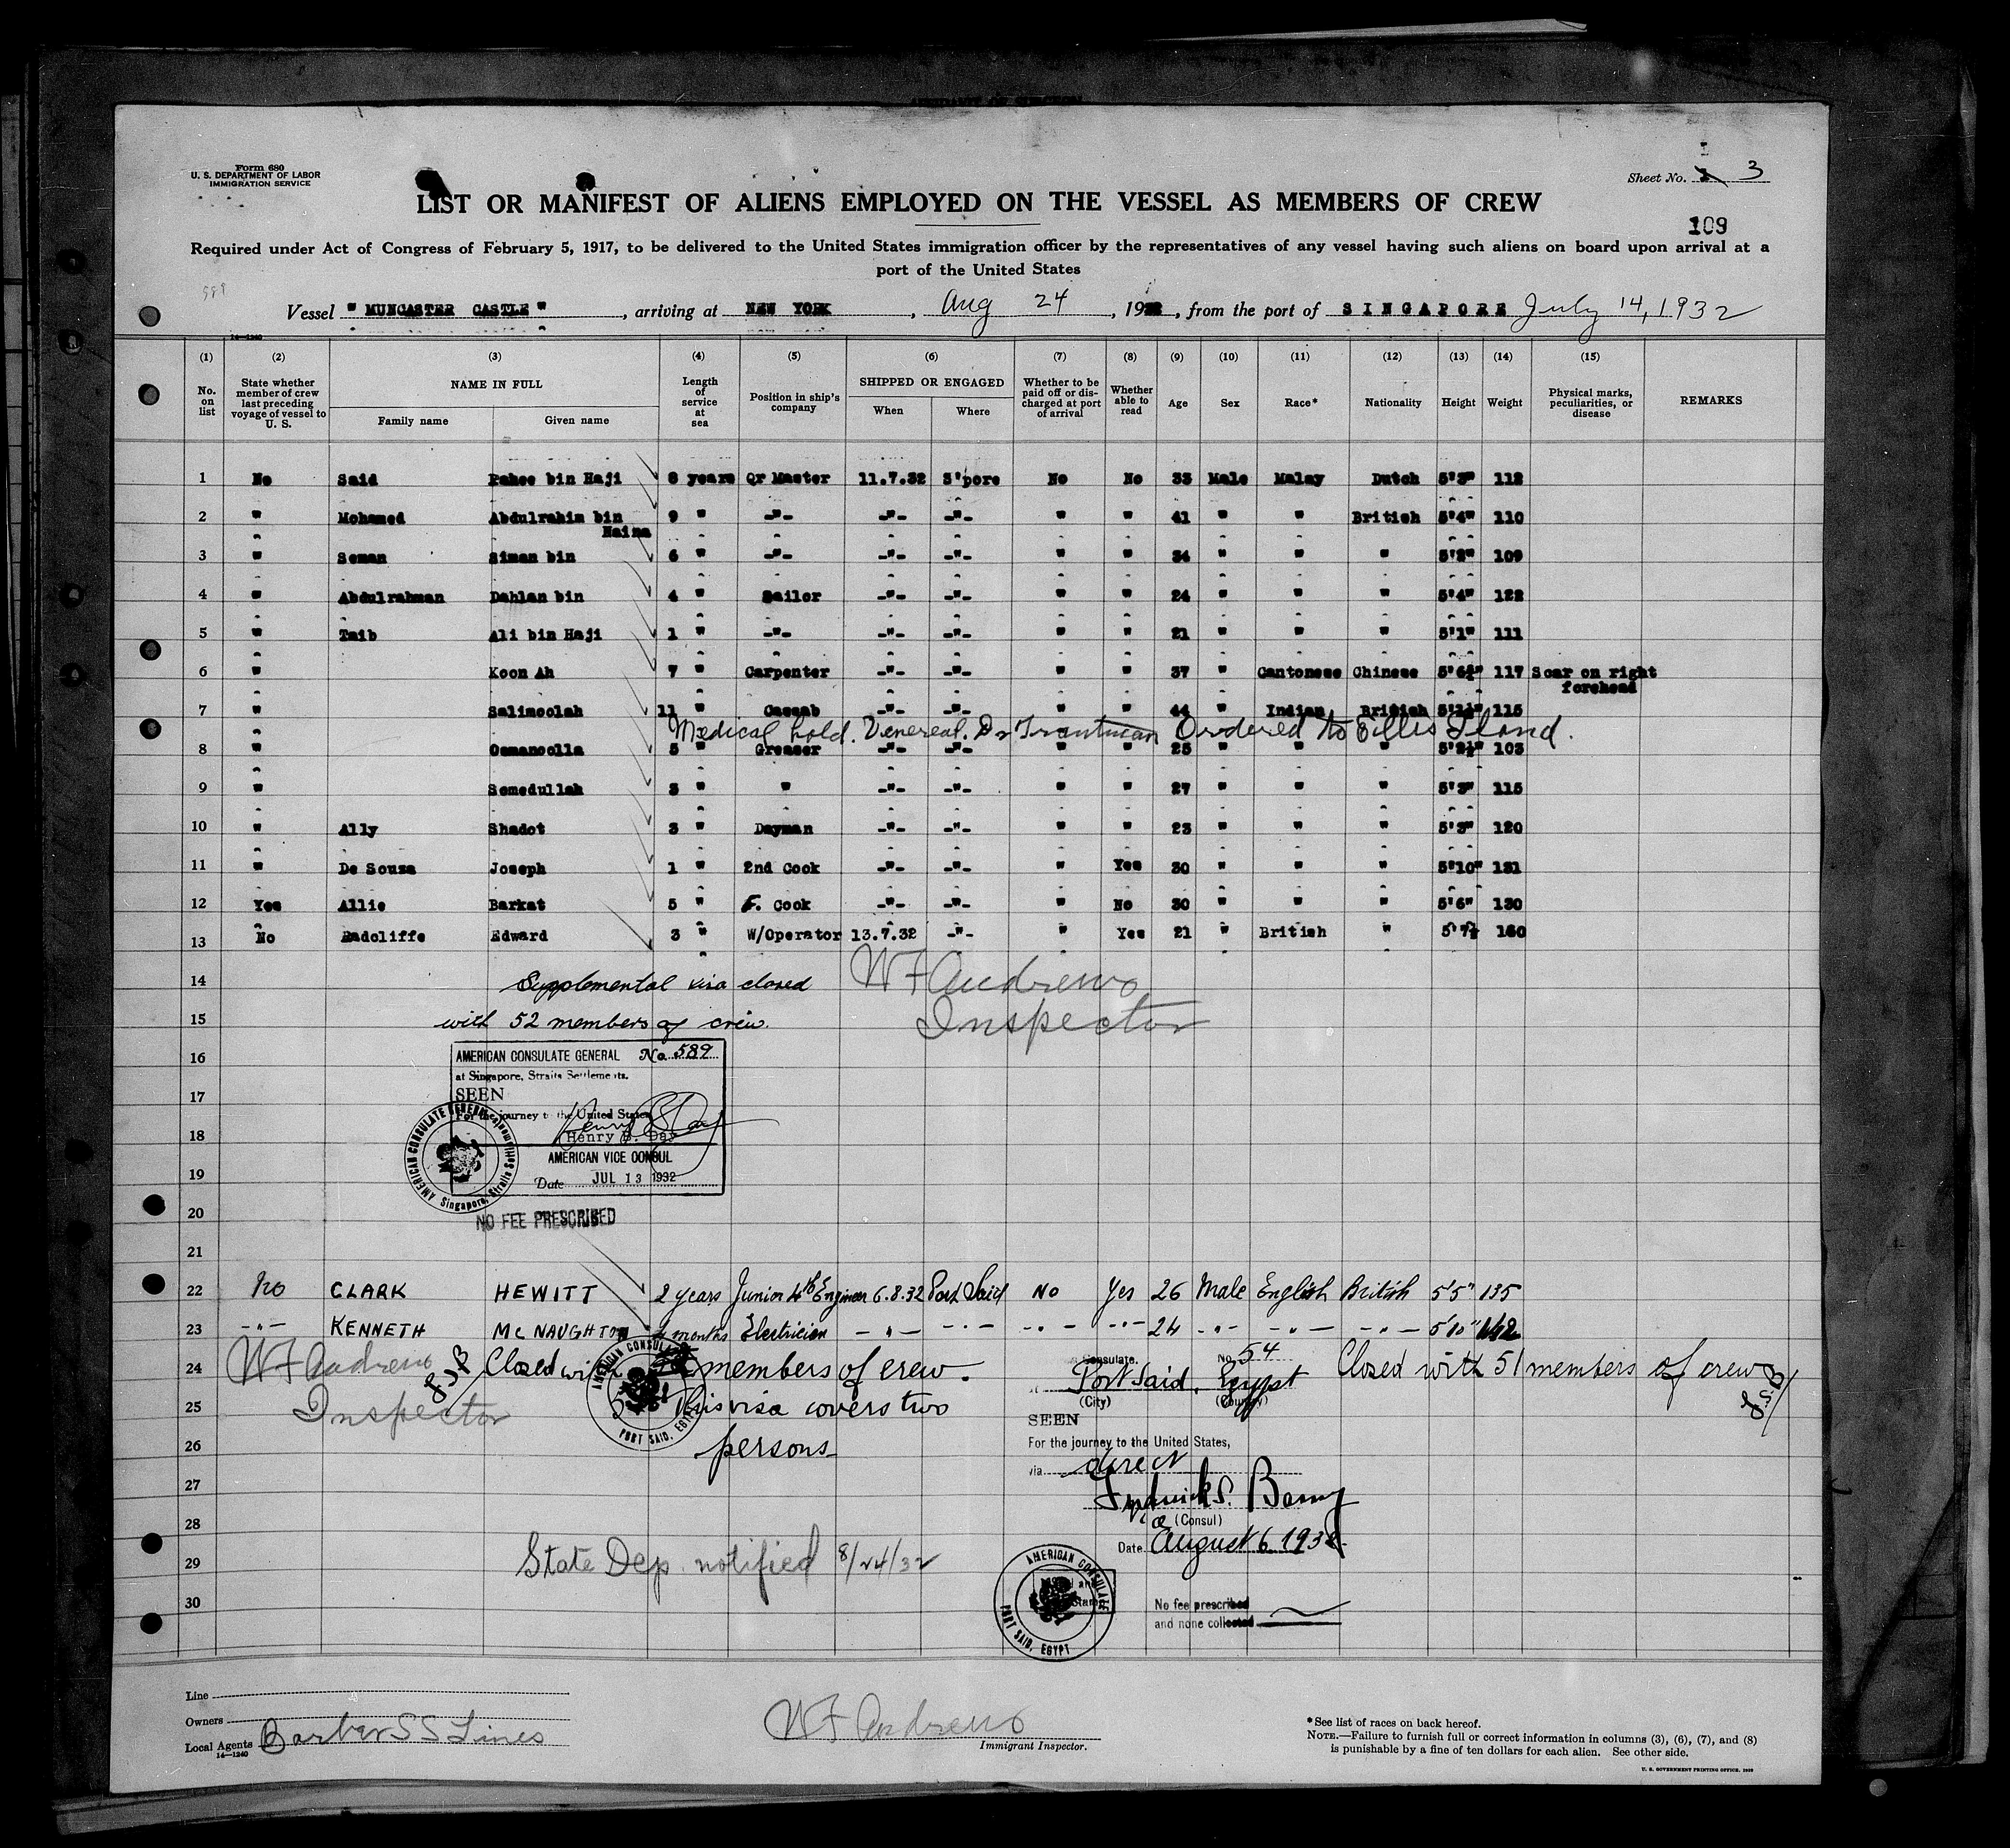 Form 680
U. S. DEPARTMENT OF LABOR
IMMIGRATION SERVICE
Sheet No. 3
LIST OR MANIFEST OF ALIENS EMPLOYED ON THE VESSEL AS MEMBERS OF CREW
109
Required under Act of Congress of February 5, 1917, to be delivered to the United States immigration officer by the representatives of any vessel having such aliens on board upon arrival at a
port of the United States
589
Vessel "MUNCASTER CASTLE", arriving at NEW YORK, Aug 24, 1932, from the port of SINGAPORE July 14, 1932
14—1240
(1) (2) (3) (4) (5) (6) (7) (8) (9) (10) (11) (12) (13) (14) (15)
No. on list
State whether member of crew last preceding voyage of vessel to U. S.
NAME IN FULL
Family name Given name
Length of service at sea
Position in ship's company
SHIPPED OR ENGAGED
When Where
Whether to be paid off or discharged at port of arrival
Whether able to read
Age Sex Race* Nationality Height Weight
Physical marks, peculiarities, or disease
REMARKS
1 No Said Rahee bin Haji 8 years Qr Master 11.7.32 S'pore No No 33 Male Malay Dutch 5'3" 112
2 " Mohamed Abdulrahim bin Naina 9 " -"- -"- -"- " " 41 " " British 5'4" 110
3 " Seman Siman bin 6 " -"- -"- -"- " " 34 " " " 5'2" 109
4 " Abdulrahman Dahlan bin 4 " Sailor -"- -"- " " 24 " " " 5'4" 122
5 " Taib Ali bin Haji 1 " -"- -"- -"- " " 21 " " " 5'1" 111
6 " Koon Ah 7 " Carpenter -"- -"- " " 37 " Cantonese Chinese 5'6½" 117 Scar on right forehead
7 " Salimoolah 11 " Cassab -"- -"- " " 44 " Indian British 5'1½" 115
Medical hold. Venereal. Dr Trautman Ordered to Ellis Iland.
8 " Osmanoolla 5 " Greaser -"- -"- " " 25 " " " 5'2½" 103
9 " Semedullah 3 " " -"- -"- " " 27 " " " 5'3" 115
10 " Ally Shadot 3 " Dayman -"- -"- " " 23 " " " 5'3" 120
11 " De Souza Joseph 1 " 2nd Cook -"- -"- " Yes 30 " " " 5'10" 131
12 Yes Allie Barkat 5 " F. Cook -"- -"- " No 30 " " " 5'6" 130
13 No Radcliffe Edward 3 " W/Operator 13.7.32 -"- " Yes 21 " British " 5'7½ 160
14 Supplemental visa closed W F Andrews
15 with 52 members of crew. Inspector
16
AMERICAN CONSULATE GENERAL No. 589
at Singapore, Straits Settlements.
17
SEEN
For the journey to the United States
Henry B. Day
18
AMERICAN VICE CONSUL
19
Date JUL 13 1932
AMERICAN CONSULATE GENERAL Singapore, Straits Settlements
20
NO FEE PRESCRIBED
21
22 No CLARK HEWITT 2 years Junior 4th Engineer 6.8.32 Port Said No Yes 26 Male English British 5'5" 135
23 -"- KENNETH McNAUGHTON 4 months Electrician -"- -"- -"- -"- 24 -"- -"- -"- 5'10" 142
24 W F Andrews Closed with members of crew.
25 Inspector This visa covers two
26 persons
AMERICAN CONSULATE PORT SAID, EGYPT
Consulate. No. 54
Port Said, Egypt
(City) (Country)
Closed with 51 members of crew
SEEN
For the journey to the United States,
via direct
27
(Consul)
28
Date August 6 1932
29 State Dep. notified 8/24/32
30
AMERICAN CONSULATE PORT SAID, EGYPT
No fee prescribed
and none collected
Line
Owners
Local Agents Barber SS Lines
14—1240
W F Andrews
Immigrant Inspector.
*See list of races on back hereof.
NOTE.—Failure to furnish full or correct information in columns (3), (6), (7), and (8)
is punishable by a fine of ten dollars for each alien. See other side.
U. S. GOVERNMENT PRINTING OFFICE. 1932